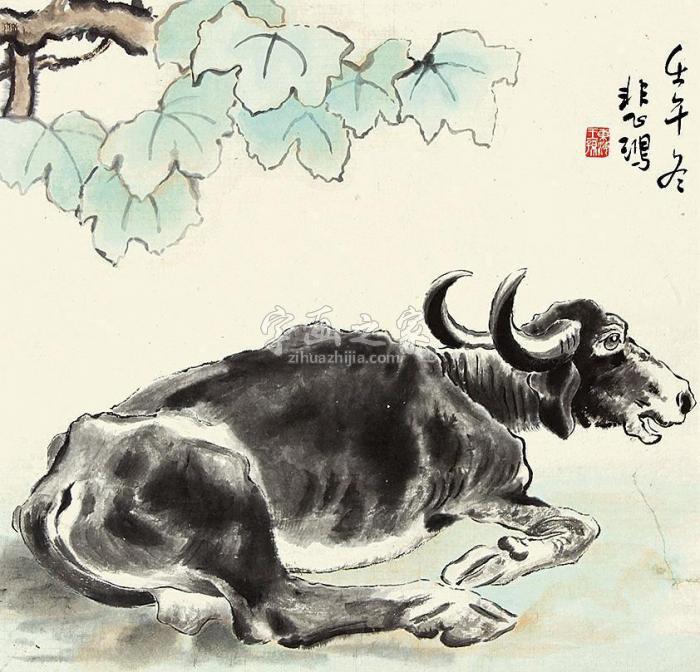 壬午冬
悲鸿
字画之家
zihuazhijia.com